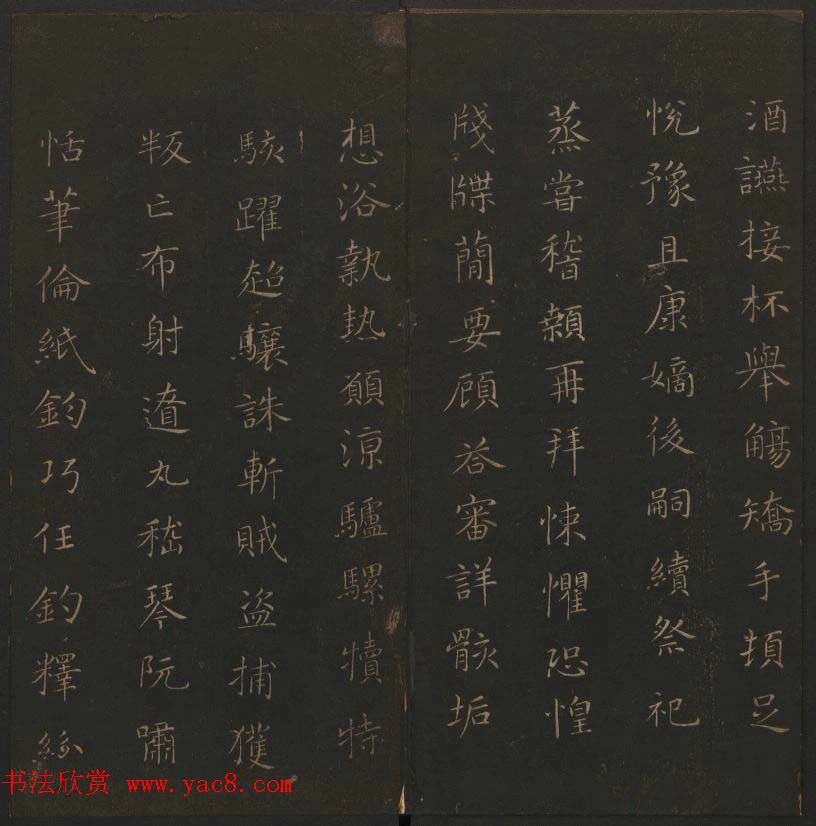 酒讌接杯舉觴矯手頓足
悅豫且康嫡後嗣續祭祀
蒸嘗稽顙再拜悚懼恐惶
牋牒簡要顧答審詳骸垢
想浴執熱願涼驢騾犢特
駭躍超驤誅斬賊盜捕獲
叛亡布射遼丸嵇琴阮嘯
恬筆倫紙鈞巧任釣釋紛
书法欣赏 www.yac8.com